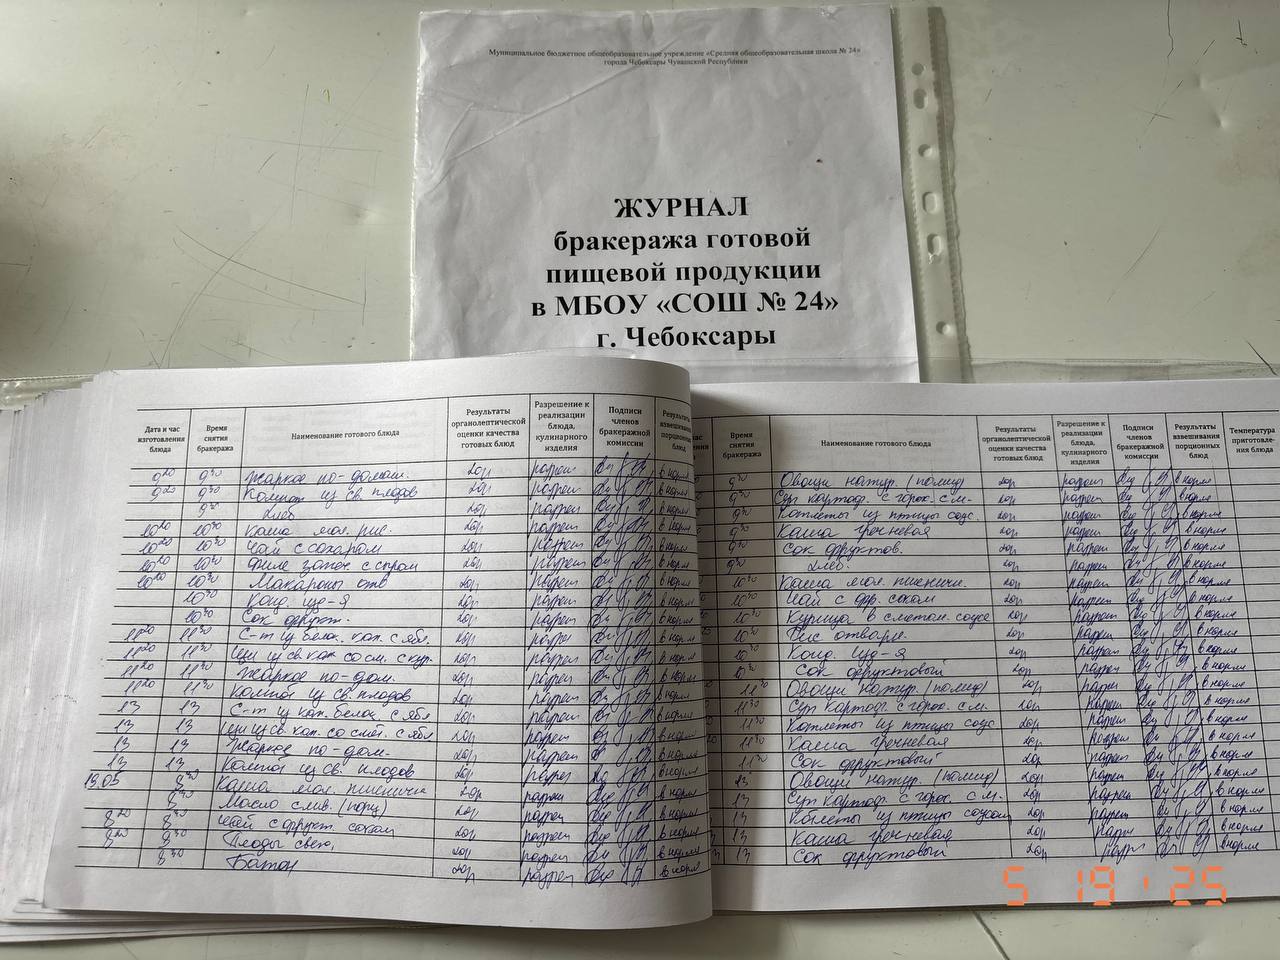 Муниципальное бюджетное общеобразовательное учреждение «Средняя общеобразовательная школа № 24»
города Чебоксары Чувашской Республики
ЖУРНАЛ
бракеража готовой
пищевой продукции
в МБОУ «СОШ № 24»
г. Чебоксары
Дата и час изготовления блюда Время снятия бракеража Наименование готового блюда Результаты органолептической оценки качества готовых блюд Разрешение к реализации блюда, кулинарного изделия Подписи членов бракеражной комиссии Результаты взвешивания порционных блюд
9 20 9 30 Жаркое по-домаш. хор разреш в норме
9 20 9 30 Компот из св. плодов хор разреш в норме
9 30 Хлеб хор разреш в норме
10 20 10 30 Каша мол. рис. хор разреш в норме
10 20 10 30 Чай с сахаром хор разреш в норме
10 20 10 30 Филе запеч с сыром хор разреш в норме
10 20 10 30 Макароны отв хор разреш в норме
10 30 Конд. изд-я хор разреш в норме
10 30 Сок фрукт. хор разреш в норме
11 20 11 30 С-т из белок. кап. с ябл. хор разреш в норме
11 20 11 30 Щи из св. кап. со см. с кур. хор разреш в норме
11 20 11 30 Жаркое по-дом. хор разреш в норме
11 20 11 30 Компот из св. плодов хор разреш в норме
13 13 С-т из кап. белок. с ябл хор разреш в норме
13 13 Щи из св. кап. со смет. с хор разреш в норме
13 13 Жаркое по-дом. хор разреш в норме
13 13 Компот из св. плодов хор разреш в норме
19.05 8 30 Каша мол. пшенична хор разреш в норме
8 30 Масло слив. (порц) хор разреш в норме
8 20 8 30 Чай с фрукт. соком хор разреш в норме
8 20 8 30 Плоды свеж. хор разреш в норме
8 30 Батон хор разреш в норме
Время снятия бракеража Наименование готового блюда Результаты органолептической оценки качества готовых блюд Разрешение к реализации блюда, кулинарного изделия Подписи членов бракеражной комиссии Результаты взвешивания порционных блюд Температура приготовле-ния блюда
9 30 Овощи натур. (помид) хор разреш в норме
9 30 Суп картоф. с горох. с м. хор разреш в норме
9 30 Котлеты из птицы соус. хор разреш в норме
9 30 Каша гречневая хор разреш в норме
9 30 Сок фруктов. хор разреш в норме
9 30 Хлеб. хор разреш в норме
10 30 Каша мол. пшеничн. хор разреш в норме
10 30 Чай с фр. соком хор разреш в норме
10 30 Курица в сметан. соусе хор разреш в норме
10 30 Рис отварн. хор разреш в норме
10 30 Конд. изд-я хор разреш в норме
10 30 Сок фруктовый хор разреш в норме
11 30 Овощи натур. (помид) хор разреш в норме
11 30 Суп картоф. с горох. с м. хор разреш в норме
11 30 Котлеты из птицы соус. хор разреш в норме
11 30 Каша гречневая хор разреш в норме
11 30 Сок фруктовый хор разреш в норме
13 Овощи натур. (помид) хор разреш в норме
13 Суп картоф. с горох. с м. хор разреш в норме
13 Котлеты из птицы соусом хор разреш в норме
13 Каша гречневая хор разреш в норме
13 Сок фруктовый хор разреш в норме
5 19 '25